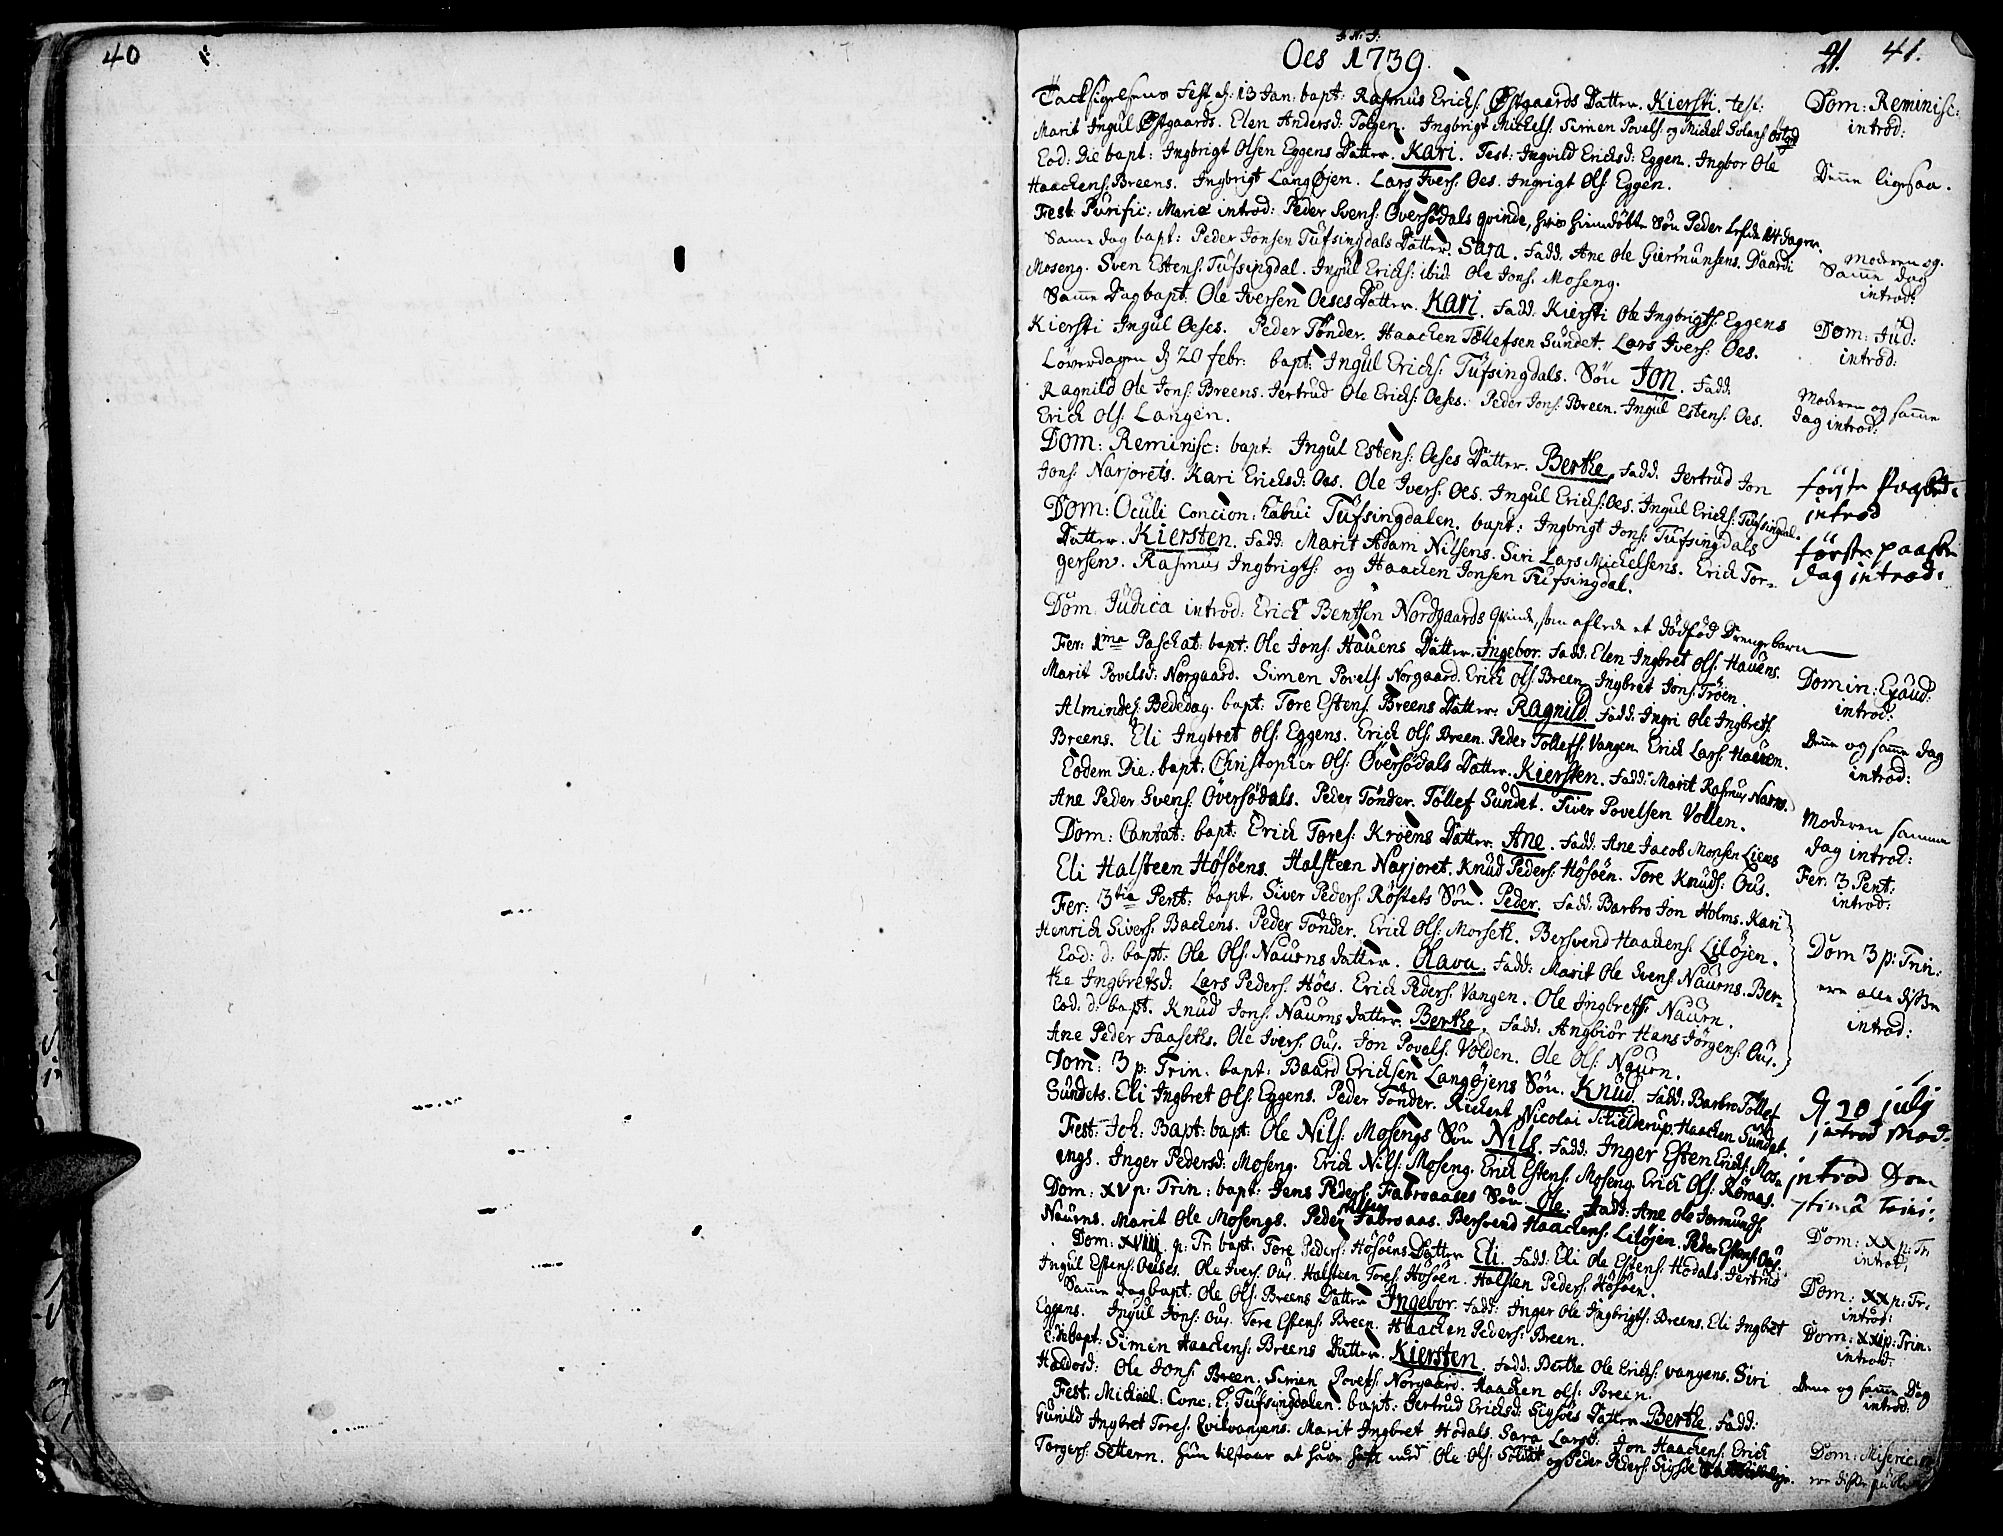 40
J: N: J:
Oes 1739.
21. 41.
Tacksigelsens Fest d: 13 Jan: bapt: Rasmus Ericks: Østgaards Datter. Kiersti. test:
Marit Ingul Østgaards. Elen Andersd: Tolgen. Ingbrigt Mickels: Simen Povels: og Mickel
Eod: Die bapt: Ingbrigt Olsen Eggens Datter. Kari. Test: Ingvild Ericksd: Eggen. Ingbor Ole
Haackens: Breens. Ingbrigt Langøjen. Lars Ivers: Oes. Ingrigt Ols: Eggen.
Fest: Purific: Mariæ introd: Peder Svens: Øversødals qvinde, hvis hiemdøbte Søn Peder lefde 14 dager.
Samme dag bapt: Peder Jonsen Tufsingdals Datter. Sara. Fadd: Ane Ole Giermunsens. Baardi
Moseng. Sven Estens: Tufsingdal. Ingul Ericks: ibid: Ole Jons: Moseng.
Samme Dag bapt: Ole Iversen Oeses Datter. Kari. Fadd: Kiersti Ole Ingbrigts: Eggens
Kiersti Ingul Oeses. Peder Tønder. Haacken Tøllefsen Sundet. Lars Ivers: Oes.
Løverdagen d 20 febr: bapt: Ingul Ericks: Tufsingdals. Søn Jon. Fadd:
Ragnild Ole Jons: Breens. Jertrud Ole Ericks: Oeses. Peder Jons: Breen. Ingul Estens: Oes.
Erick Ols: Langen.
Dom: Reminisc: bapt: Ingul Estens: Oeses Datter. Berthe, Fadd: Jertrud Jon
Jons: Narjorets. Kari Ericksd: Oes. Ole Ivers: Oes. Ingul Ericks: Oes. Ingul Ericks: Tufsingdal.
Dom: Oculi Concion: habui Tufsingdalen. bapt: Ingbrigt Jons: Tufsingdals
Datter. Kiersten. Fadd: Marit Adam Nilsens. Siri Lars Mickelsens. Erick Tor-
gersen. Rasmus Ingbrigts: og Haacken Jonsen Tufsingdal.
Dom Judica introd: Erick Bentsen Nordgaards qvinde, som aflede et dødfød Drengebarn
Fer: 1ma Paschat: bapt: Ole Jons: Hauens Datter. Ingebor. Fadd: Elen Ingbret Ols: Hauens.
Marit Povelsd: Norgaard. Simen Povels: Norgaard. Erick Ols: Breen. Ingbret Jons: Trøen.
Almindel: Bededag. bapt: Tore Estens: Breens Datter. Ragnild. Fadd: Ingri Ole Ingbrets:
Breens. Eli Ingbret Ols: Eggens. Erick Ols: Breen. Peder Tollefs: Vangen Erick Lars: Hauen.
Eodem Die. bapt: Christopher Ols: Øversødals Datter. Kiersten. Fadd: Marit Rasmus Narns.
Ane Peder Svens: Øversødals. Peder Tønder. Tøllef Sundet. Siver Povelsen Vollen.
Dom: Cantat: bapt: Erick Tores: Krøens Datter. Ane. Fadd: Ane Jacob Monsen Liens
Eli Halsteen Høsøens. Halsteen Narjoret. Knud Peders: Høsøen. Tore Knuds: Ous.
Fer: 3tia Pent: bapt: Siver Peders: Røstets Søn. Peder. Fadd: Barbro Jon Holms. Kari
Henrick Sivers: Backens. Peder Tønder. Erick Ols: Morseth. Bersvend Haackens: Liløjen.
Eod: d: bapt: Ole Ols: Naurns datter. Olava. Fadd: Marit Ole Svens: Naurns. Ber-
the Ingbretsd: Lars Peders: Høes. Erick Peders: Vangen. Ole Ingbrets: Naurn.
Eod: d: bapt. Knud Jons: Naurns datter. Berthe. Fadd: Angbiør Hans Jørgens: Ous.
Ane Peder Faaseths. Ole Ivers: Ous. Jon Povels: Volden. Ole Ols: Naurn.
Dom: 3 p: Trin: bapt: Baard Ericksen Langøjens Søn. Knud. Fadd: Barbro Tøllef
Sundets. Eli Ingbret Ols: Eggens. Peder Tønder. Rickert Nicolai Schielderup. Haacken Sundet.
Fest: Joh: Bapt: bapt: Ole Nils: Mosengs Søn Nils. Fadd: Inger Esten Ericks: Mos-
engs. Inger Pedersd: Moseng. Erick Nils: Moseng. Erick Estens: Moseng. Erick Ols: Røraas.
Dom: XV p: Trin: bapt: Jens Peders: Fabroaases Søn Ole. Fadd: Ane Ole Jormunds:
Naurns. Marit Ole Mosengs. Peder Nilsen Fabroaas. Bersvend Haackens: Liløjen. Peder Estens: Ous.
Dom: XVIII. p: Tr: bapt: Tore Peders: Høsøens Datter Eli. Fadd: Eli Ole Estens: Hodals. Jertrud
Ingul Estens: Oeses. Ole Ivers: Ous. Halsteen Tores: Høsøen. Halsten Peders: Høsøen.
Samme dag bapt: Ole Ols: Breens Datter Ingebor. Fadd: Inger Ole Ingbrigts: Breens. Eli Ingbret
Eggens. Ingul Jons: Ous. Tore Estens: Breen. Haacken Peders: Breen.
E: die bapt: Simen Haackens: Breens Datter. Kiersten. Fadd: Berthe Ole Ericks: Vangens. Siri
Haldosd: Ole Jons: Breen. Simen Povels: Norgaard. Haacken Ols: Breen.
Fest: Michael: Conc: E: Tufsingdalen. bapt: Jertrud Ericksd: Sigsøes Datter Berthe. Fadd:
Gunild Ingbret Tores: Qvilvangens. Marit Ingbret Hodals. Sara Larsd: Jon Haackens: Erick
Torgers: Settern. Hun tilstaar at have haft med Ole Ols: Soldat og Peder Peders: Sigsøe
Dom: Reminisc:
introd:
Denne ligesaa.
Moderen og
Samme dag
introd:
Dom: Jud:
introd:
Moderen og samme
dag introd:
første Paaske
introd
første paaske
dag introd:
Domin: Exaud:
introd:
Denne og samme dag
introd:
Moderen samme
dag introd:
Fer: 3 Pent:
introd:
Dom 3 p: Trin:
ere alle disse
introd:
d 20 julij
introd Mod:
introd Dom
Dom: XX p: Tr
introd:
Dom: XX p: Tr.
introd:
Dom: XXI p: Trin:
introd:
Denne og samme Dag
introd:
Dom: Miseric:
ere disse